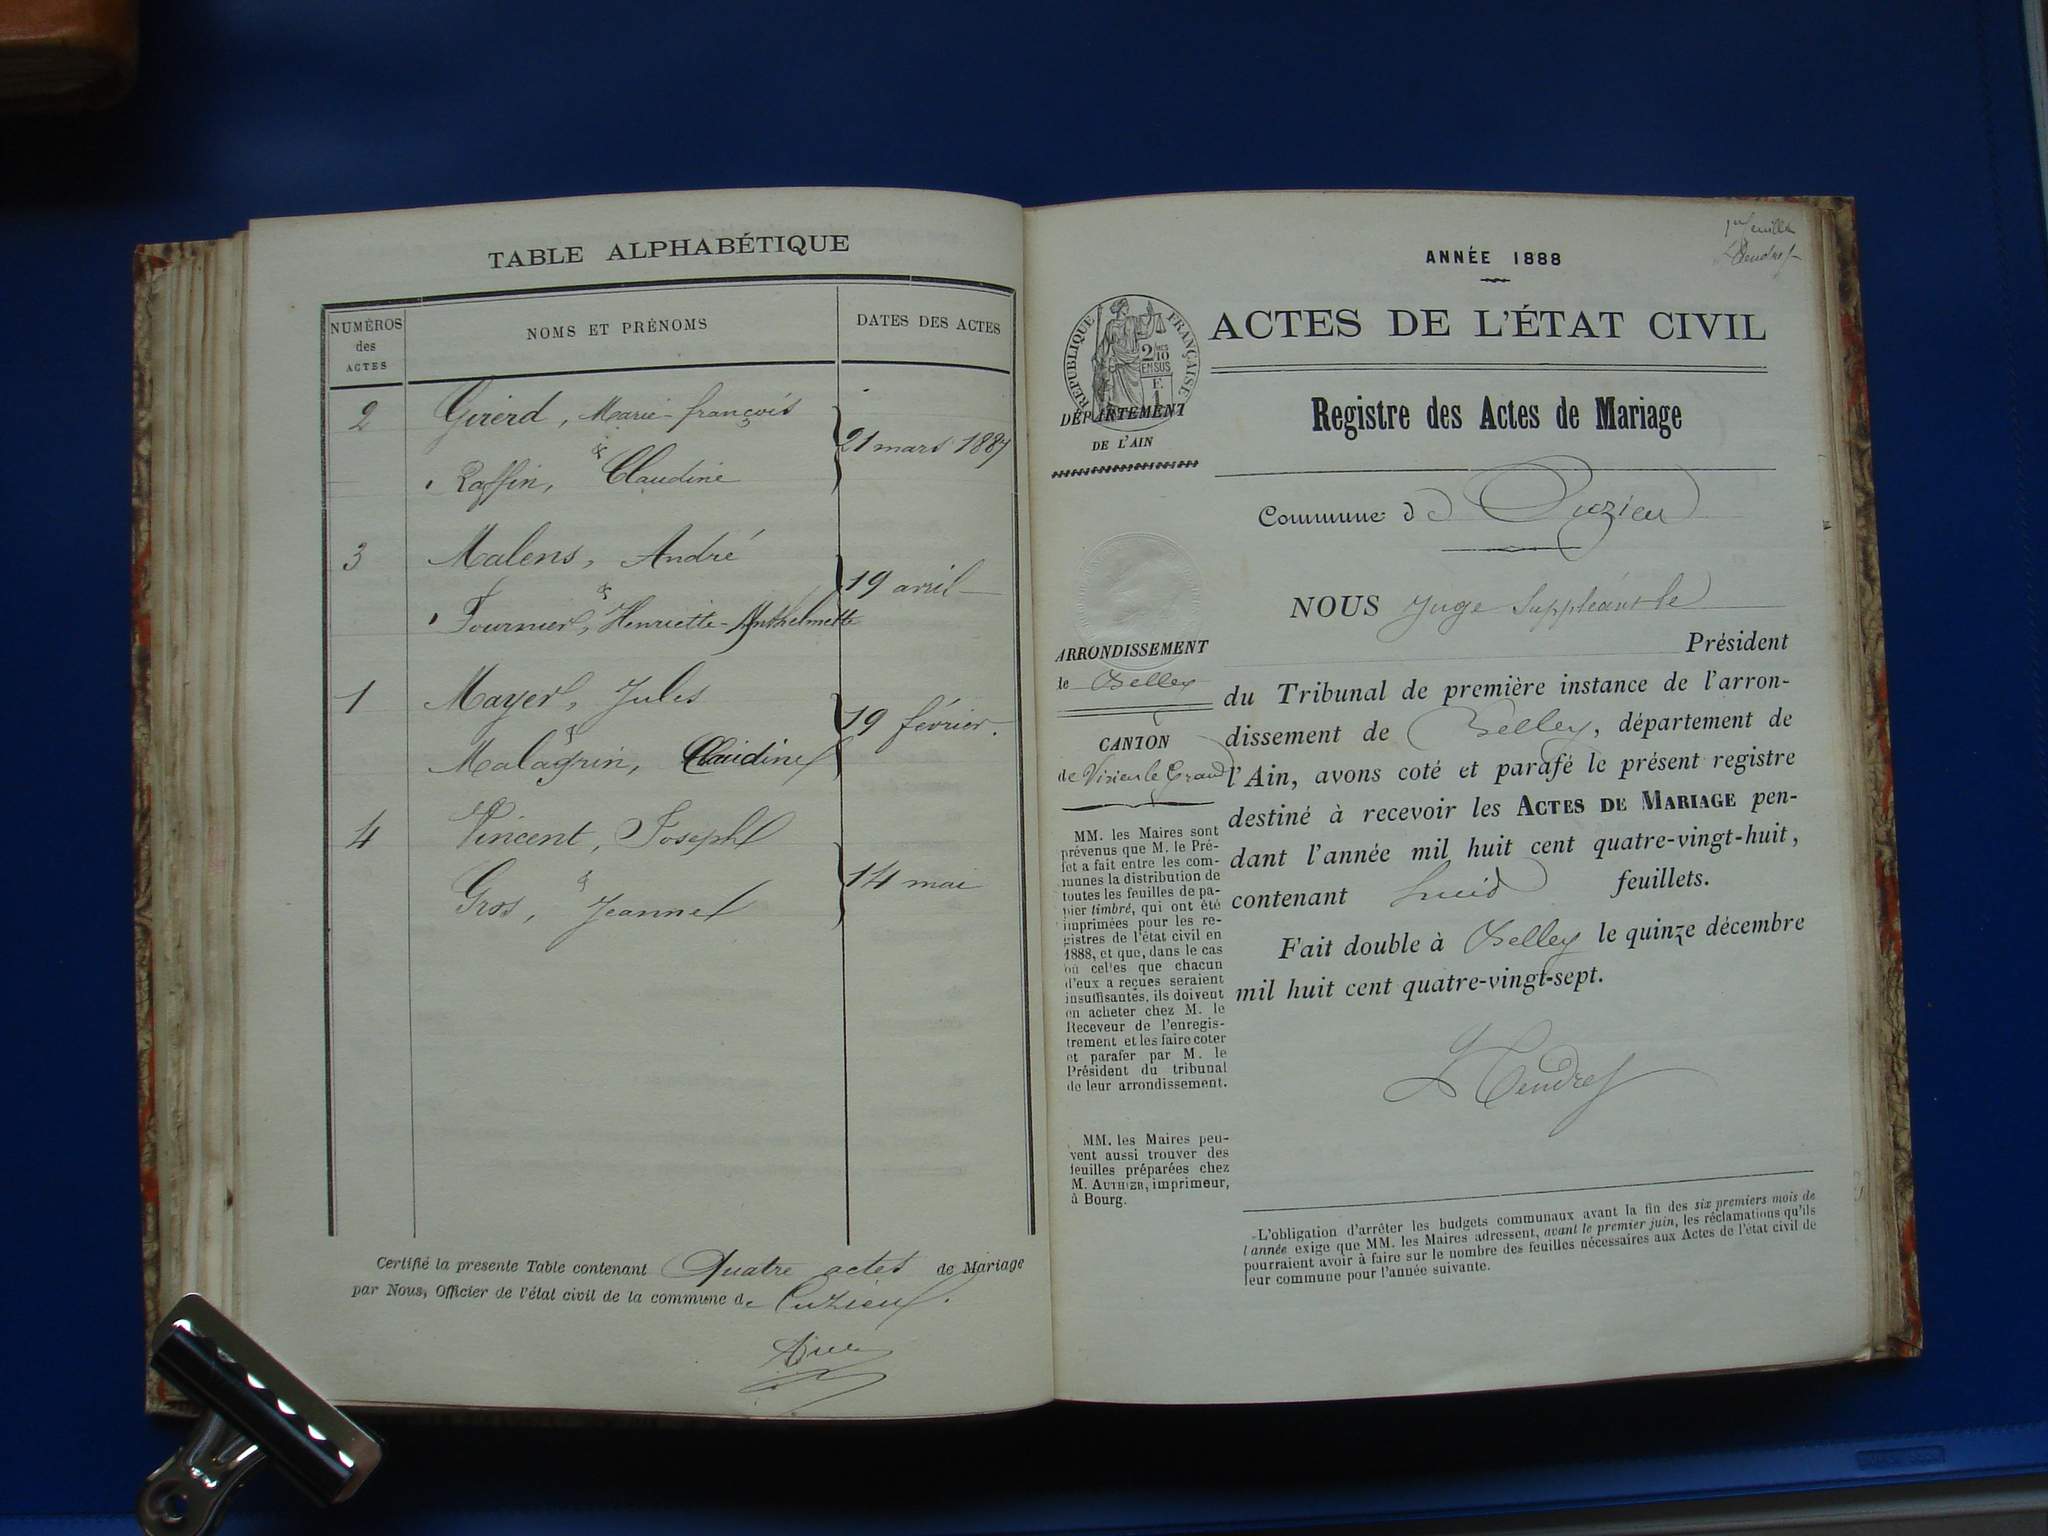 TABLE ALPHABÉTIQUE
NUMÉROS
des
ACTES
NOMS ET PRÉNOMS
DATES DES ACTES
2
Girerd, Marie-françois
&
Raffin, Claudine
21 mars 1887
3
Malens, André
&
Fournier, Henriette-Anthelmette
19 avril
1
Mayer, Jules
&
Malagrin, Claudine
19 février.
4
Vincent, Joseph
&
Gros, Jeanne
14 mai
Certifié la presente Table contenant Quatre actes de Mariage
par Nous, Officier de l'état civil de la commune de Cuzieu.
1er feuillet
ANNÉE 1888
ACTES DE L'ÉTAT CIVIL
RÉPUBLIQUE FRANÇAISE
2 /10
EN SUS
DÉPARTEMENT
DE L'AIN
Registre des Actes de Mariage
Commune de Cuzieu
ARRONDISSEMENT
de Belley
CANTON
de Virieu le Grand
MM. les Maires sont
prévenus que M. le Pré-
fet a fait entre les com-
munes la distribution de
toutes les feuilles de pa-
pier timbré, qui ont été
imprimées pour les re-
gistres de l'état civil en
1888, et que, dans le cas
où celles que chacun
d'eux a reçues seraient
insuffisantes, ils doivent
en acheter chez M. le
Receveur de l'enregis-
trement et les faire coter
et parafer par M. le
Président du tribunal
de leur arrondissement.
MM. les Maires peu-
vent aussi trouver des
feuilles préparées chez
M. AUTHIER, imprimeur,
à Bourg.
NOUS Juge Suppléant le
Président
du Tribunal de première instance de l'arron-
dissement de Belley, département de
l'Ain, avons coté et parafé le présent registre
destiné à recevoir les ACTES DE MARIAGE pen-
dant l'année mil huit cent quatre-vingt-huit,
contenant feuillets.
Fait double à Belley le quinze décembre
mil huit cent quatre-vingt-sept.
L'obligation d'arrêter les budgets communaux avant la fin des six premiers mois de
l'année exige que MM. les Maires adressent, avant le premier juin, les réclamations qu'ils
pourraient avoir à faire sur le nombre des feuilles nécessaires aux Actes de l'état civil de
leur commune pour l'année suivante.